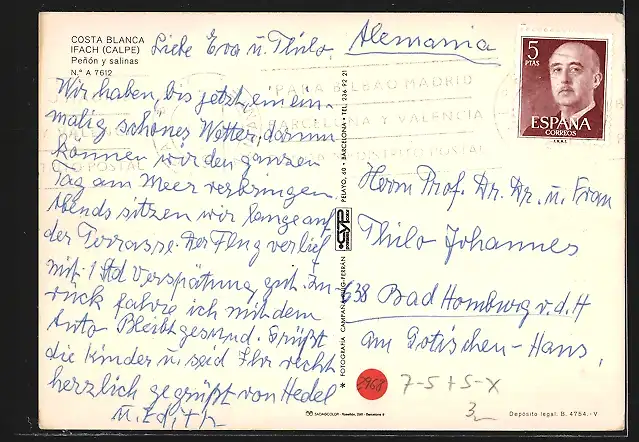 COSTA BLANCA
IFACH (CALPE)
Peñón y salinas
N.º A 7612
Liebe Eva u. Thilo,
Wir haben, bis jetzt, ein ein-
malig schönes Wetter, darum
können wir den ganzen
Tag am Meer verbringen.
Abends sitzen wir lange auf
der Terrasse. Der Flug verlief
mit 1 Std Verspätung, gut. Zu-
rück fahre ich mit dem
Auto Bleibt gesund. Grüßt
die Kinder u. seid Ihr recht
herzlich gegrüßt von Hedel
u. Edith
* FOTOGRAFIA CAMPAÑÁ-PUIG-FERRÁN
CYP
PELAYO, 60 • BARCELONA • TEL. 236 92 21
PARA BILBAO MADRID
BARCELONA Y VALENCIA
DISTRITO POSTAL
5
PTAS
ESPAÑA
CORREOS
Alemania
Herrn Prof. Dr. Dr. u. Frau
Thilo Johannes
638 Bad Homburg v. d. H
am Gotischen-Haus,
1968
7-5+5-X
3
Depósito legal. B. 4754.-V